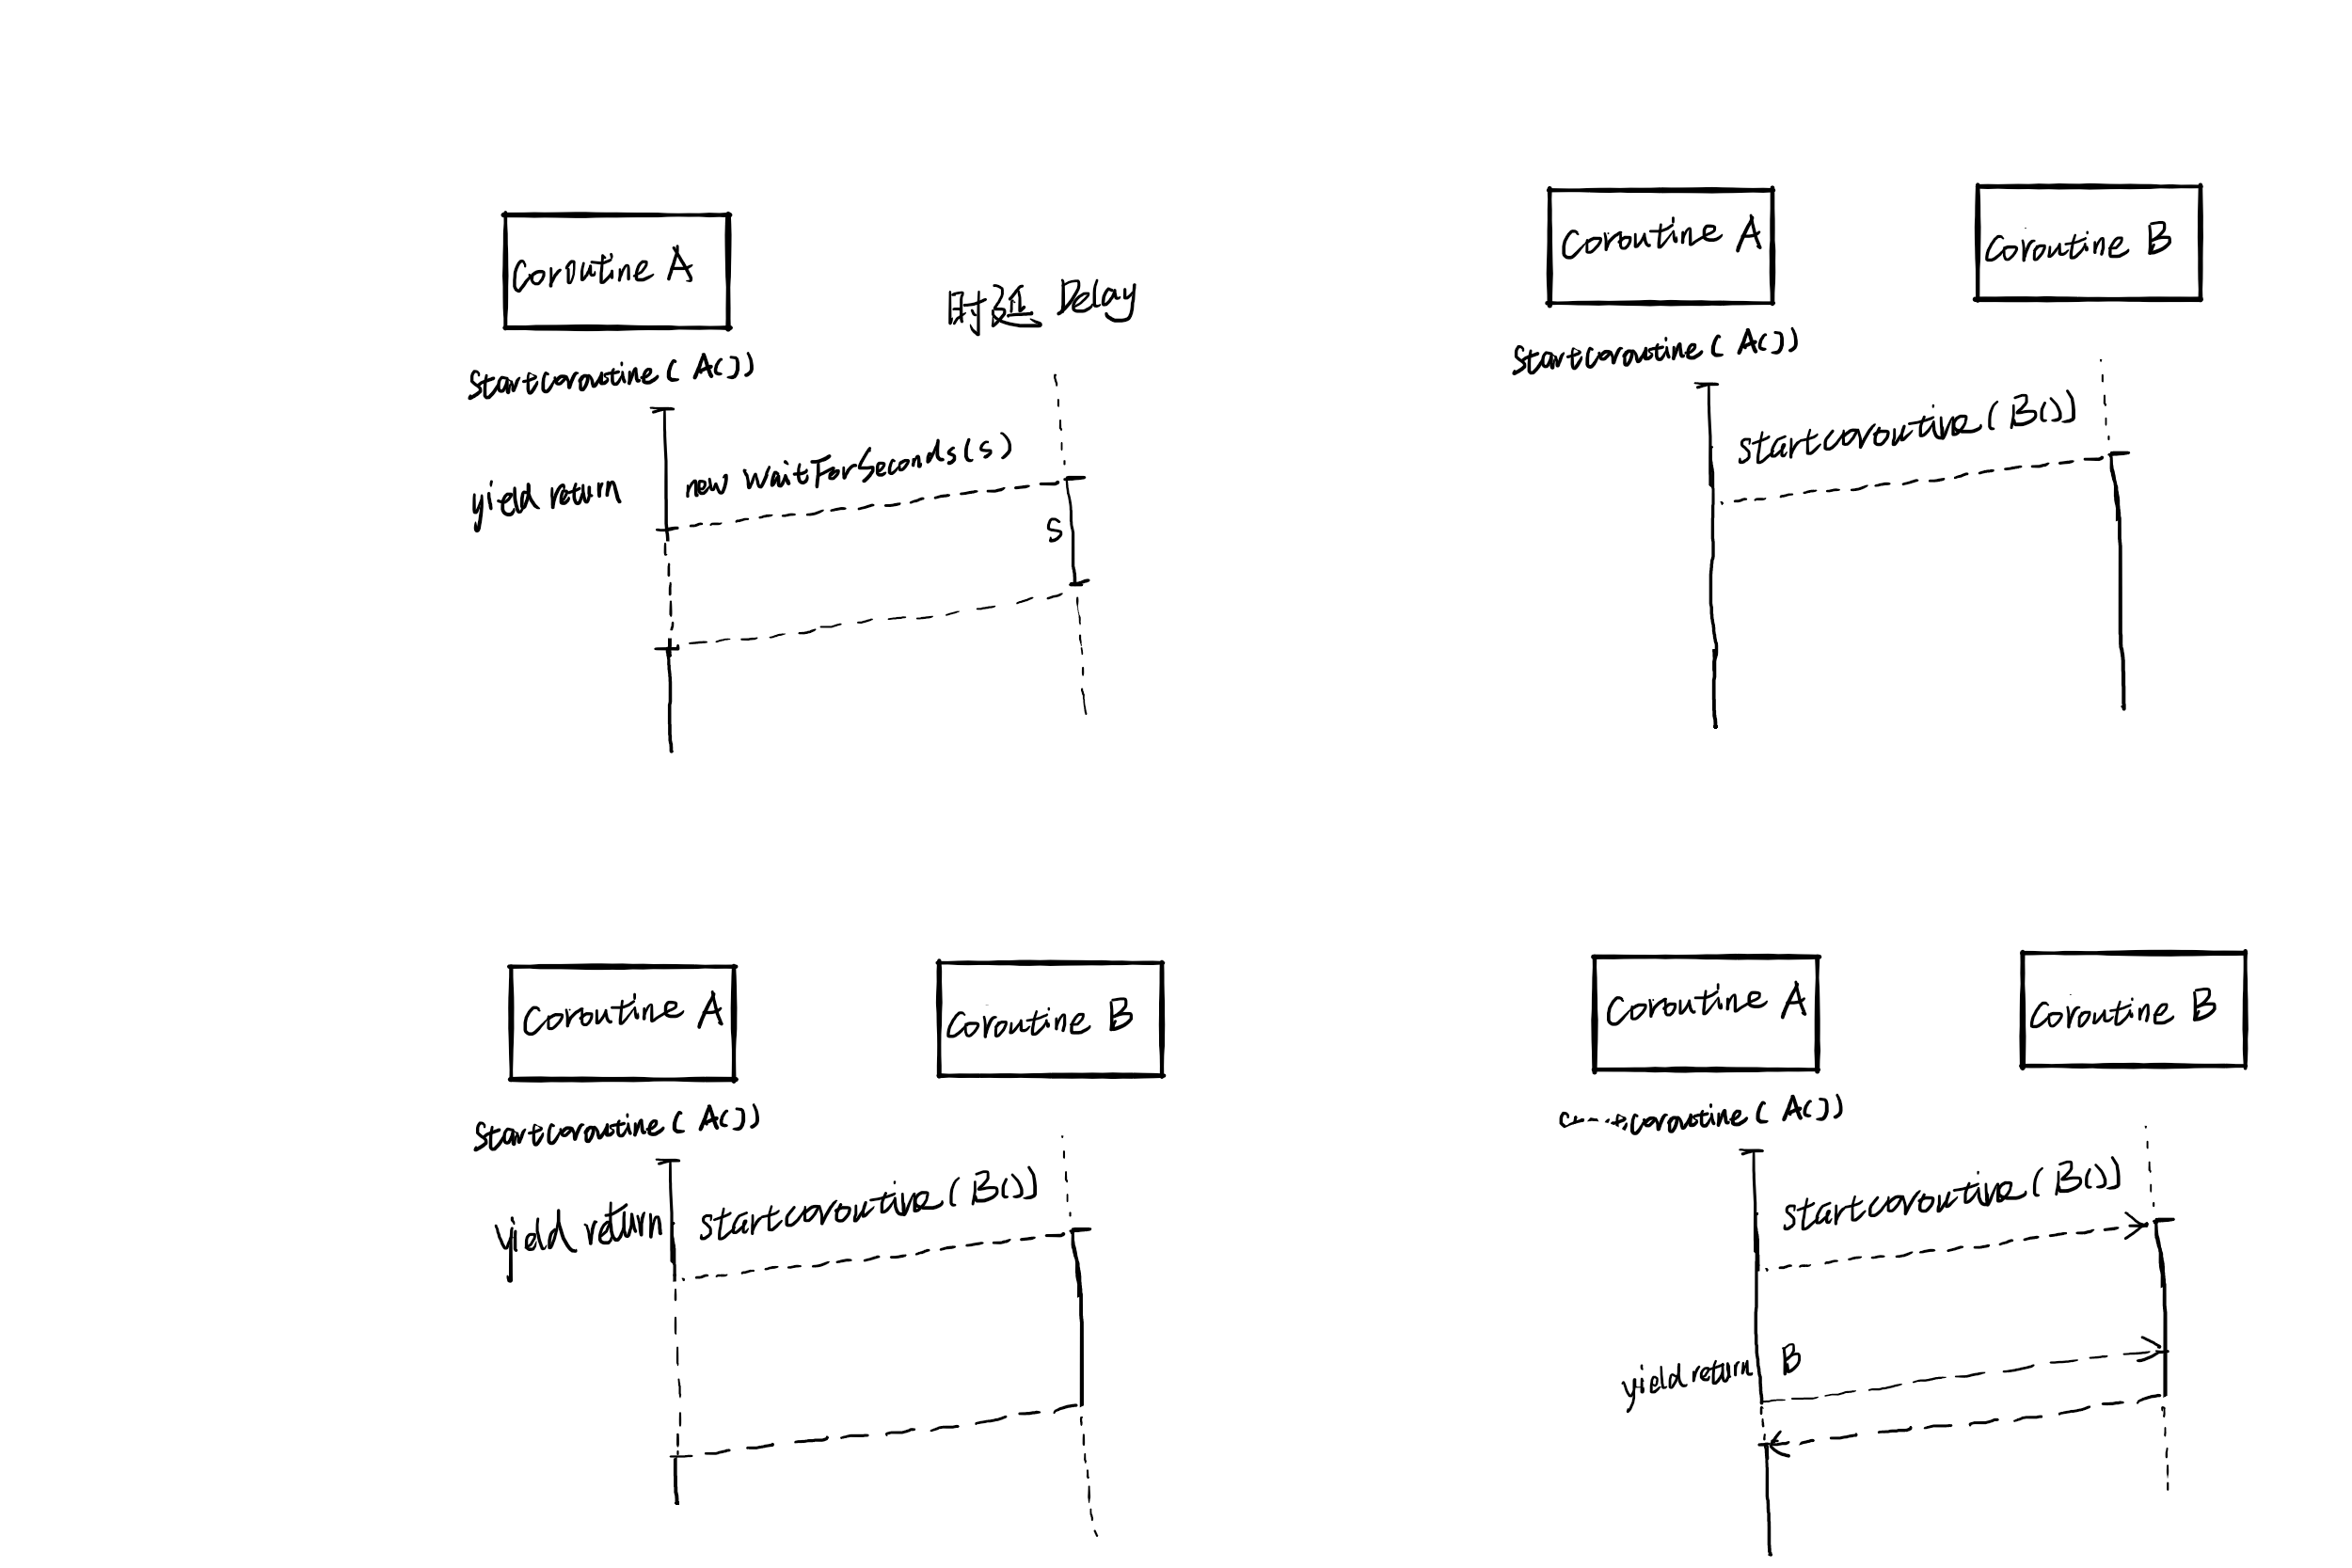 Coroutine A
时延 Delay
startcoroutine ( A())
new WaitForSeconds(s)
yield return
s
Coroutine A
Coroutine B
startcoroutine ( A())
startcoroutine ( B())
Coroutine A
Coroutine B
startcoroutine ( A())
startcoroutine ( B())
yield return
Coroutine A
Coroutine B
coroutine ( A())
startcoroutine ( B())
yield return B